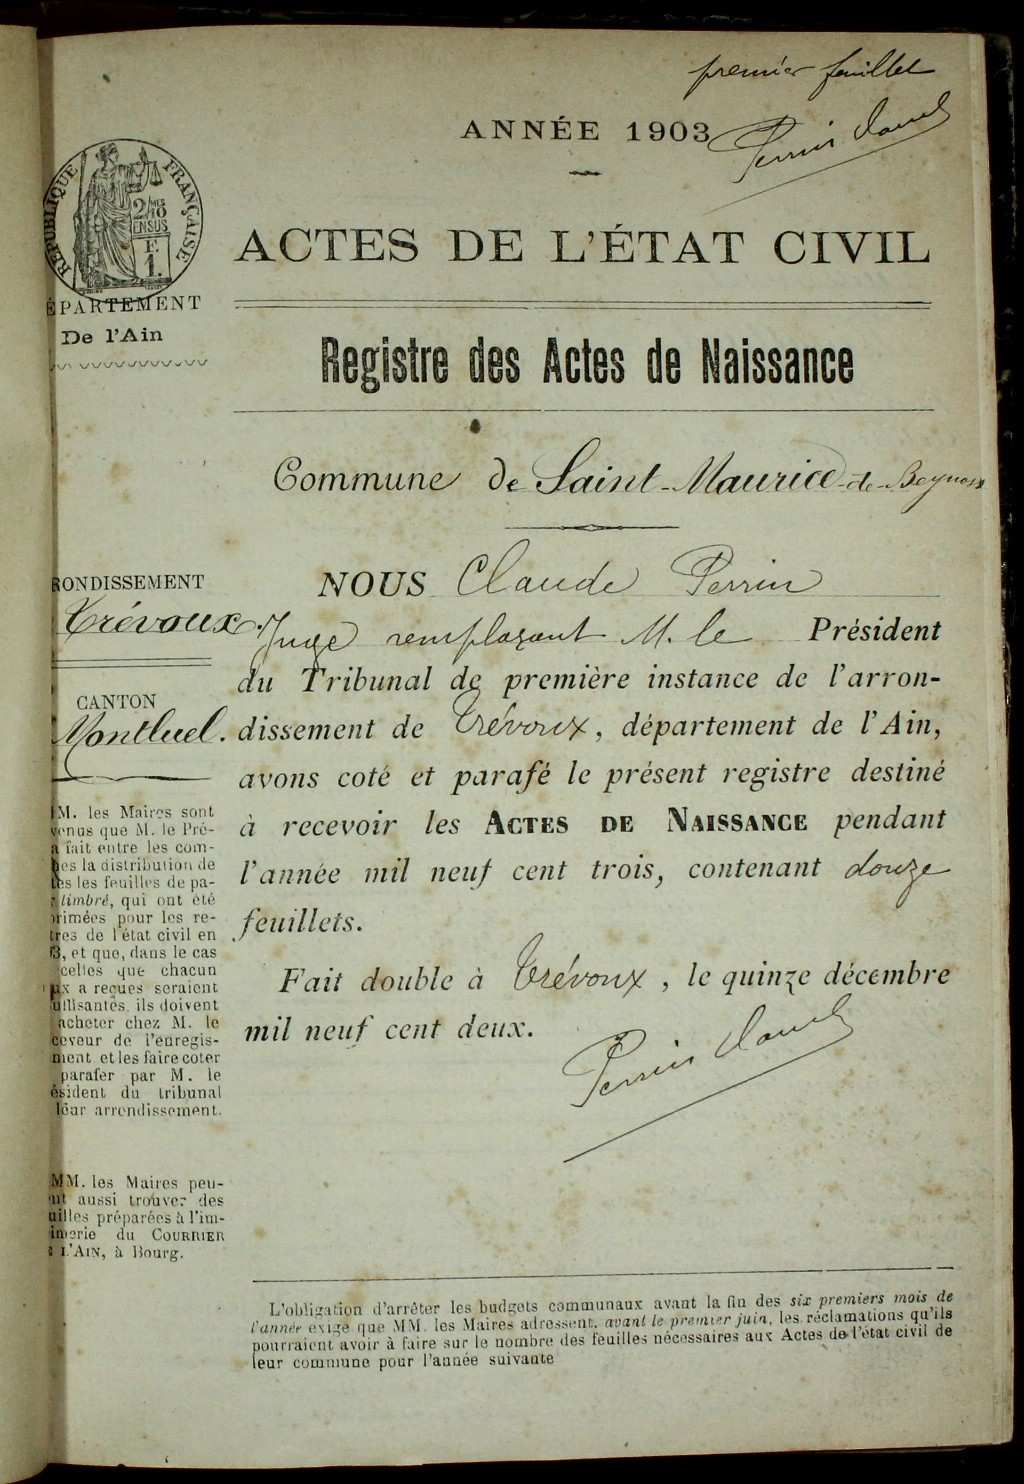 premier feuillet
ANNÉE 1903
Perrin Claude
RÉPUBLIQUE FRANÇAISE
2/10
EN SUS
F.
1.
ÉPARTEMENT
De l'Ain
ACTES DE L'ÉTAT CIVIL
Registre des Actes de Naissance
Commune de Saint-Maurice-de-Beynost
RONDISSEMENT
Trévoux.
CANTON
Montluel.
NOUS Claude Perrin
Juge remplaçant M. le Président
du Tribunal de première instance de l'arron-
dissement de Trévoux, département de l'Ain,
avons coté et parafé le présent registre destiné
à recevoir les ACTES DE NAISSANCE pendant
l'année mil neuf cent trois, contenant douze
feuillets.
Fait double à Trévoux, le quinze décembre
mil neuf cent deux.
Perrin Claude
M. les Maires sont
venus que M. le Pré-
a fait entre les com-
es la distribution de
es les feuilles de pa-
timbré, qui ont été
rimées pour les re-
tres de l'état civil en
3, et que, dans le cas
celles que chacun
ux a reçues seraient
uffisantes, ils doivent
acheter chez M. le
ceveur de l'enregis-
ment et les faire coter
parafer par M. le
ésident du tribunal
leur arrondissement.
MM. les Maires peu-
nt aussi trouver des
uilles préparées à l'im-
imerie du COURRIER
E L'AIN, à Bourg.
L'obligation d'arrêter les budgets communaux avant la fin des six premiers mois de
l'année exige que MM. les Maires adressent, avant le premier juin, les réclamations qu'ils
pourraient avoir à faire sur le nombre des feuilles nécessaires aux Actes de l'état civil de
leur commune pour l'année suivante